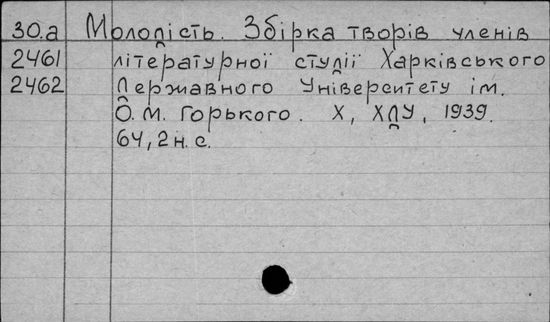 30.а Молодість. Збірка творів членів
2461 літературної студії Харківського
2462 Державного Університету ім.
О. М. Горького. Х, ХДУ, 1939.
64, 2 н. с.